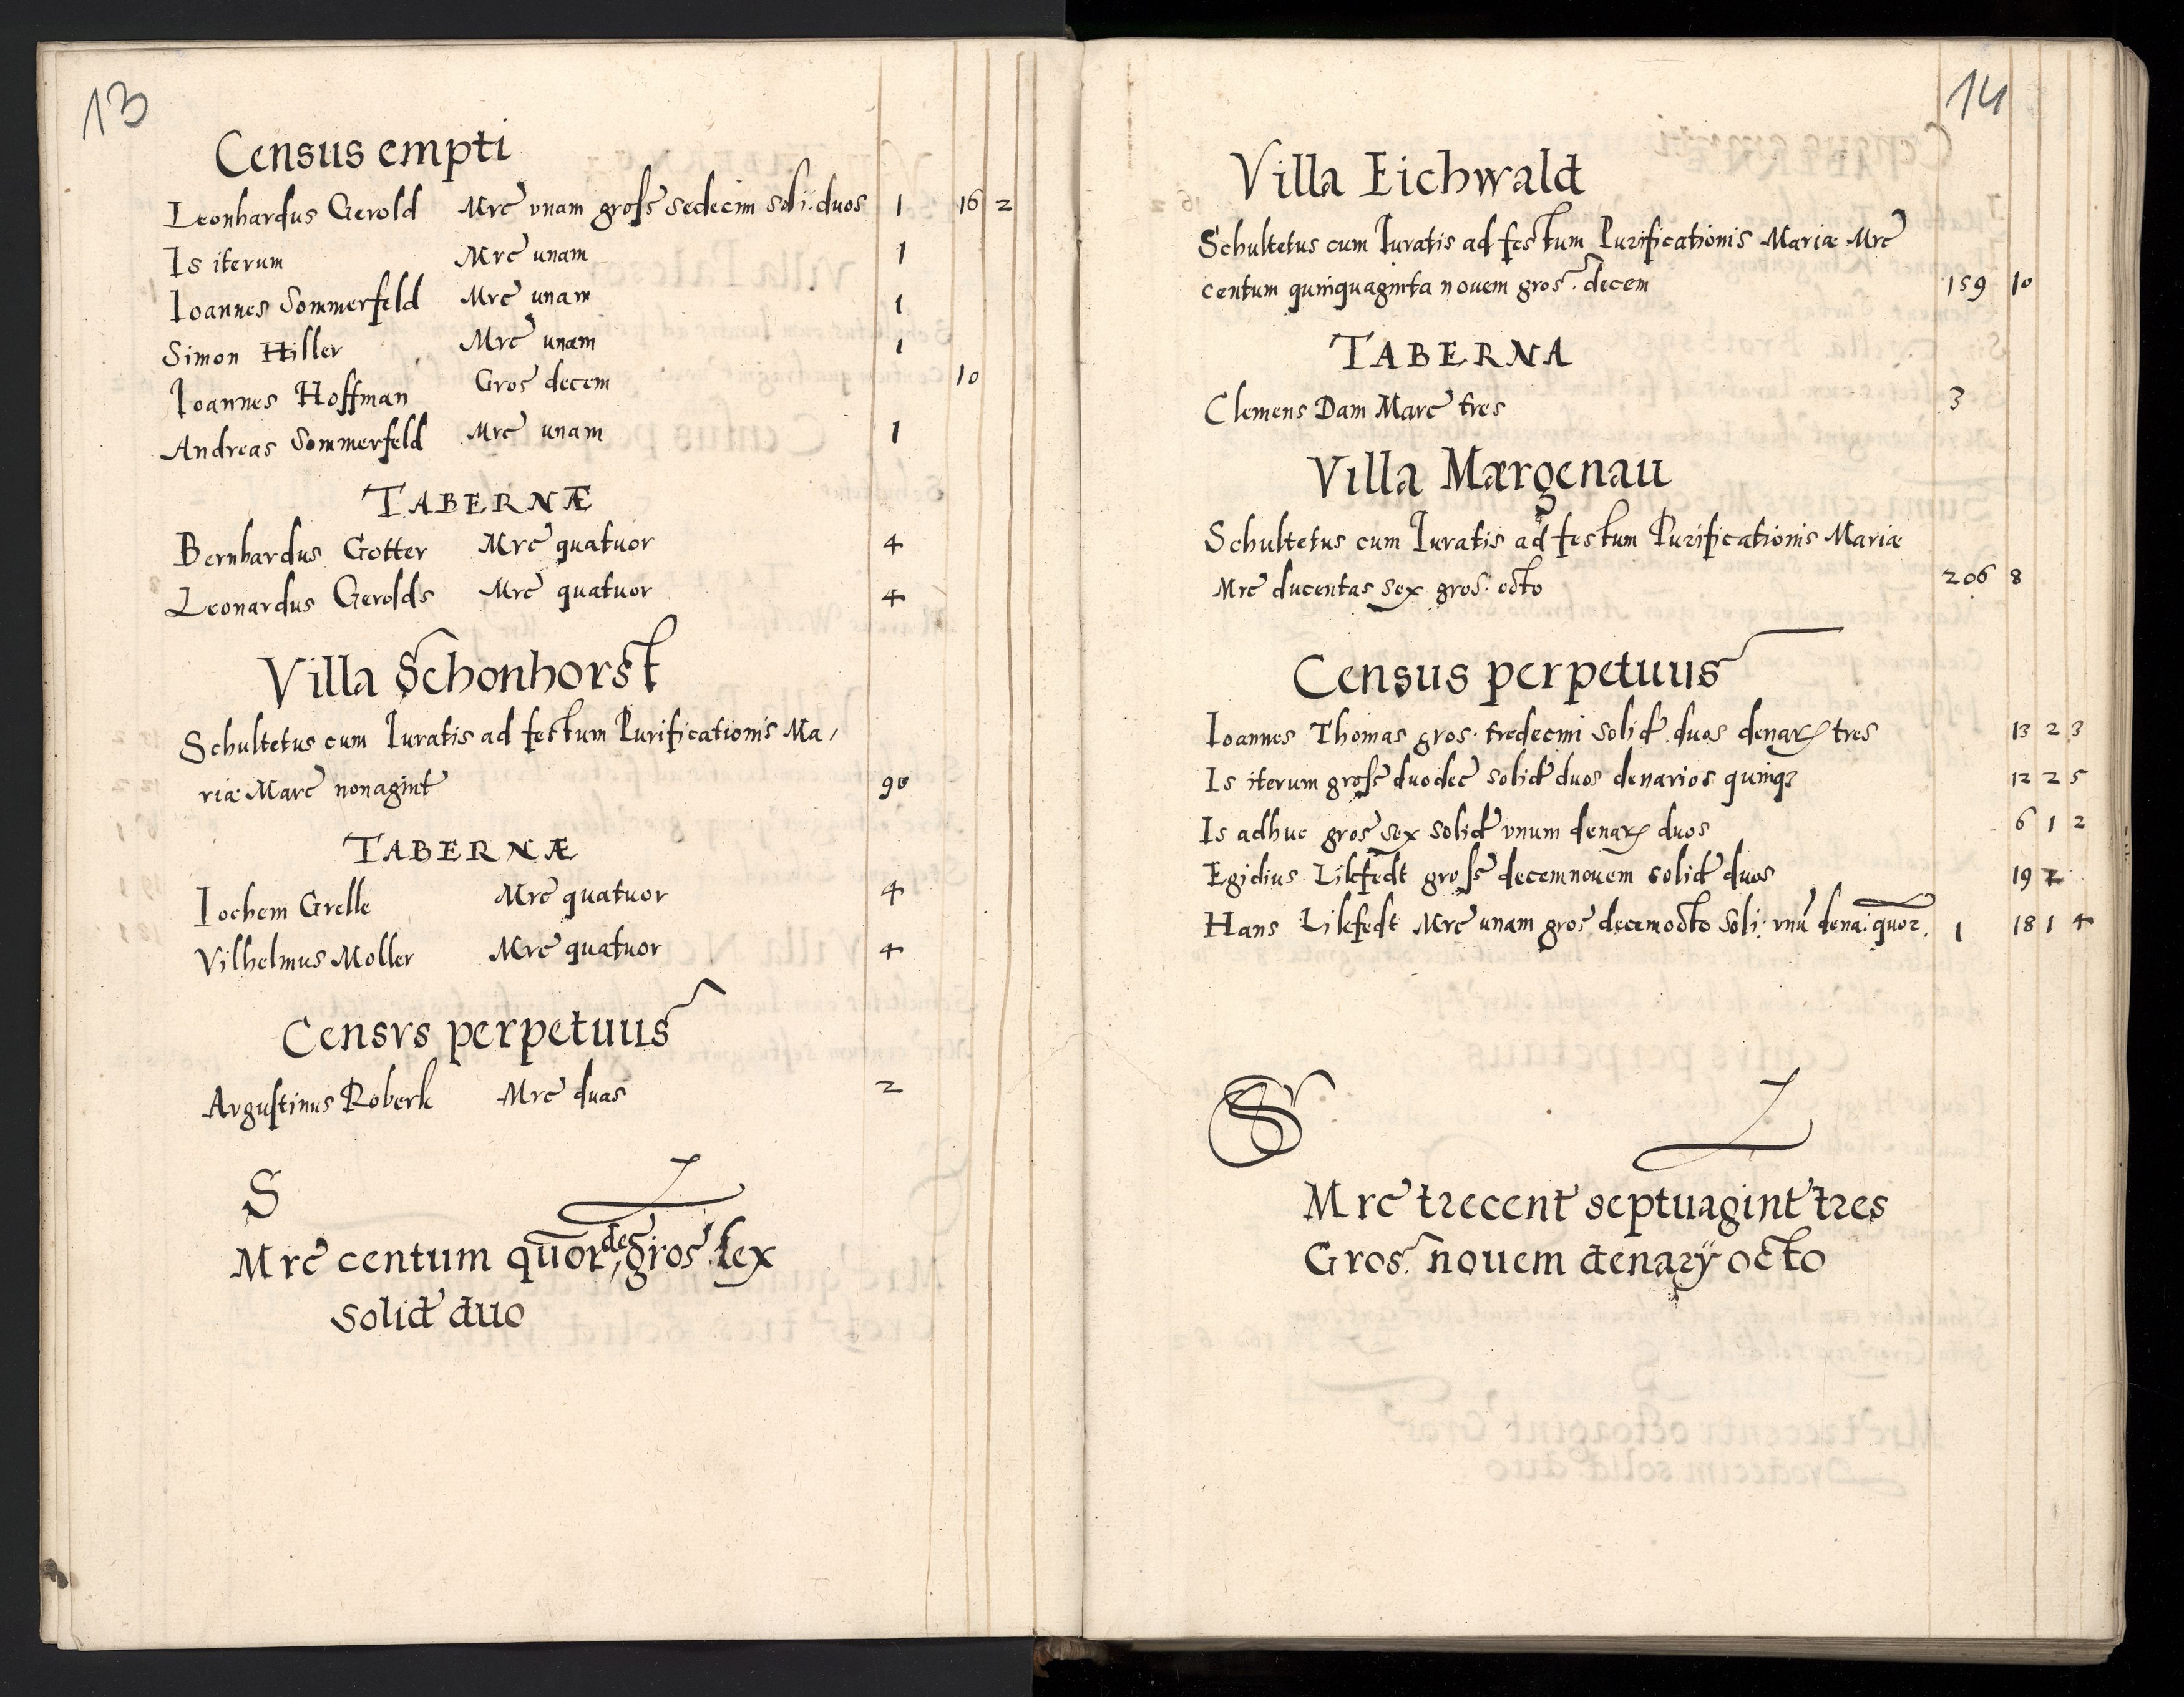 13
Census empti
Leonhardus Gerold Mrc vnam gross sedecim soli: duos 1 16 2
Is iterum Mrc unam 1
Ioannes Sommerfeld Mrc unam 1
Simon Hiller Mrc unam 1
Ioannes Hoffman Gros decem 10
Andreas Sommerfeld Mrc unam 1
TABERNÆ
Bernhardus Gotter Mrc quatuor 4
Leonardus Gerolds Mrc quatuor 4
Villa Schonhorst
Schultetus cum Iuratis ad festum Purificationis Ma,
riæ Marc nonagint 90
TABERNÆ
Iochem Grelle Mrc quatuor 4
Vilhelmus Moller Mrc quatuor 4
Censvs perpetuus
Avgustinus Roberk Mrc duas 2
S
Mrc centum quor,dec gros sex
Solid duo
14
Villa Eichwald
Schultetus cum Iuratis ad festum Purificationis Mariæ Mrc
centum quinquaginta novem gros. decem 159 10
TABERNA
Clemens Dam Marc tres 3
Villa Margenau
Schultetus cum Iuratis ad festum Purificationis Mariæ
Mrc ducentas sex gros. octo 206 8
Census perpetuus
Ioannes Thomas gros. tredecim solid. duos denar tres 13 2 3
Is iterum gross duodec solid duos denarios quinq3 12 2 5
Is adhuc gros sex solid vnum denar duos 6 1 2
Egidius Lilefedt gross decemnovem solid duos 19 2
Hans Lilefedt Mrc unam gros decemocto Soli. vnū dena. quor. 1 18 1 4
S
Mrc trecent septuagint tres
Gros. novem denarÿ octo